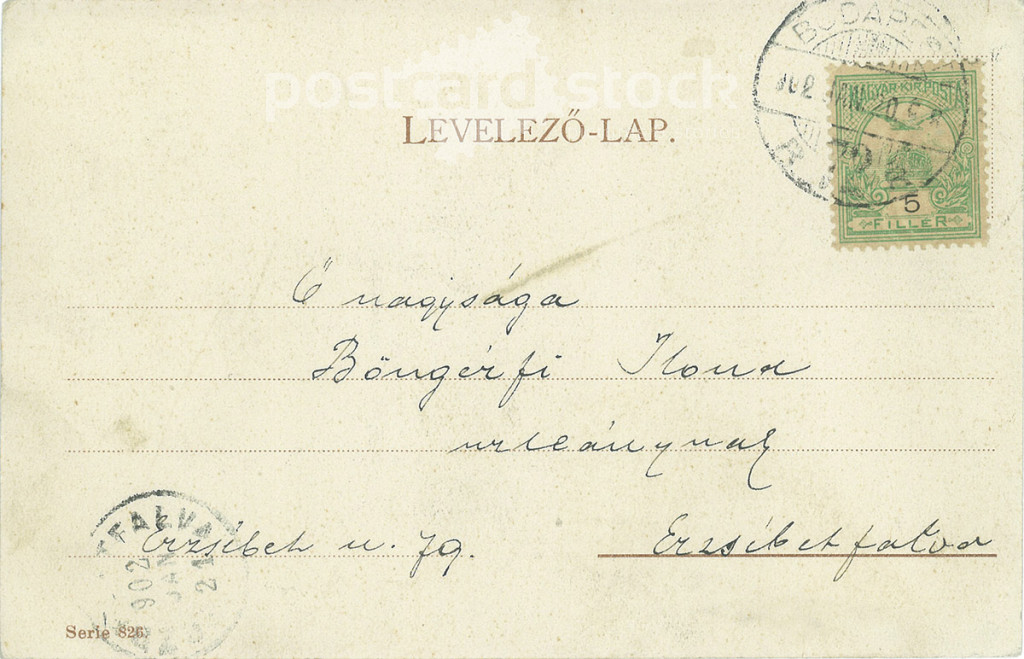 postcardstock
LEVELEZŐ-LAP.
BUDAPES
902 JAN 20
MAGYAR·KIR·POSTA
5
FILLÉR
Ő nagysága
Böngérfi Ilona
urleánynak
Erzsébet u. 79.
Erzsébetfalva
TFALVA
902 JAN 21
Serie 826.